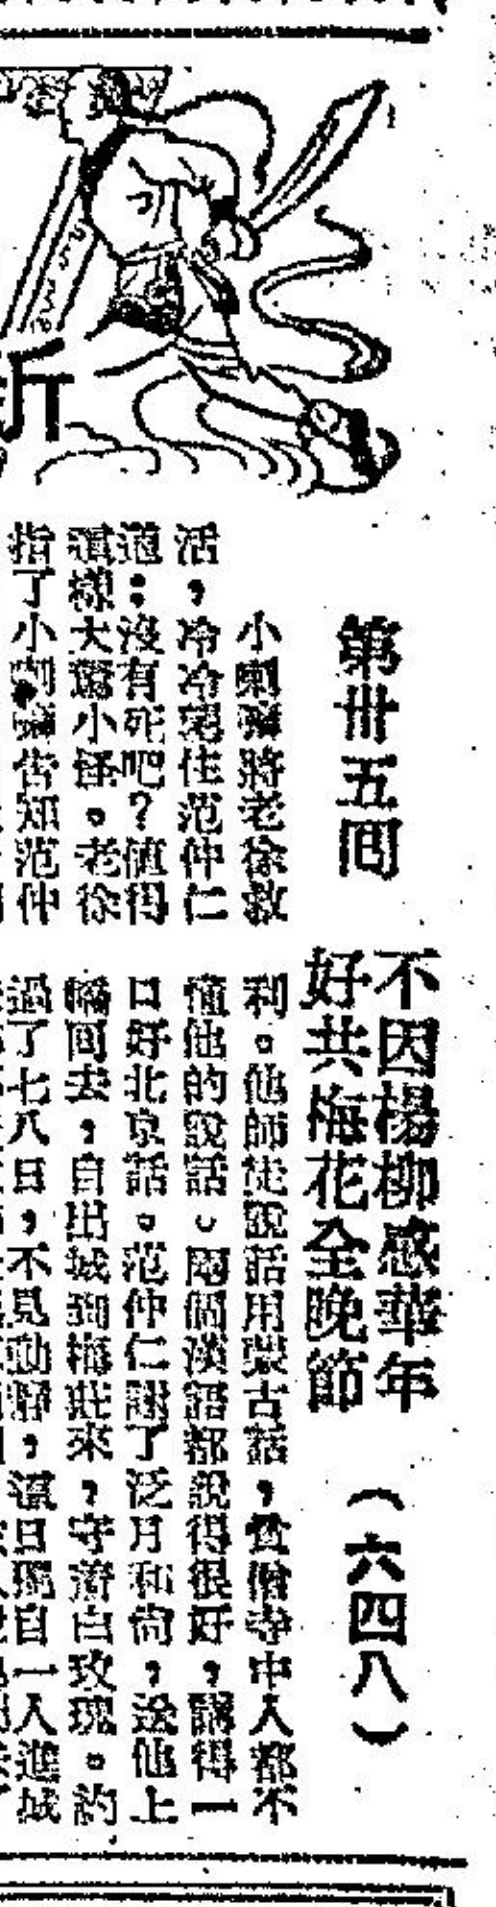 第卅五回
不因楊柳感華年
好共梅花全晚節
（六四八）
小喇嘛將老徐救
活，冷冷鬼住范仲仁
道：沒有死吧？值得
這樣大驚小怪。老徐
指了小喇嘛告知范仲
利。他師徒說話用蒙古話，賣僧寺中人都不
懂他的說話。兩個漢語都說得很好，講得一
口好北京話。范仲仁謝了泛月和尚，送他上
轎回去，自出城到梅莊來，守着白玫瑰。約
過了七八日，不見動靜，這日獨自一人進城
新